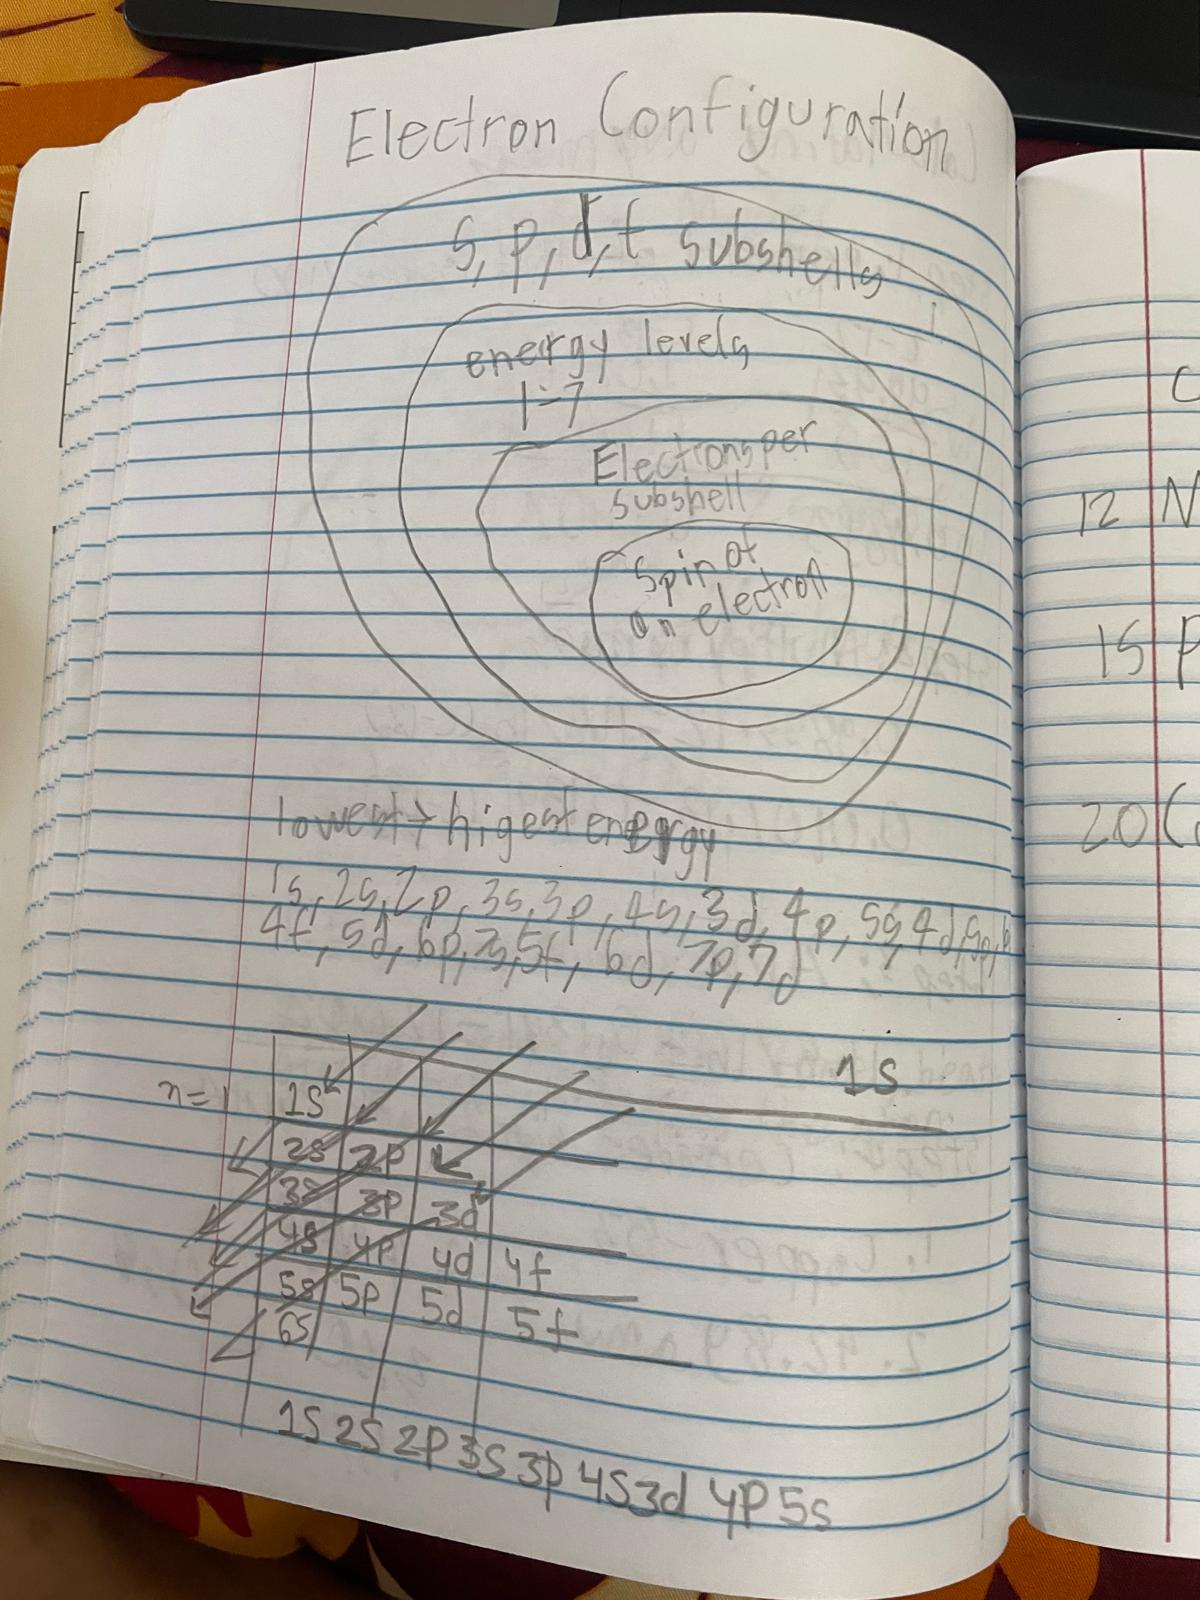 Electron Configuration
s, p, d, f subshells
energy levels
1-7
Electrons per
subshell
Spin of
an electron
lowest → higest energy
1s, 2s, 2p, 3s, 3p, 4s, 3d, 4p, 5s, 4d, 5p,
4f, 5d, 6p, 7s, 5f, 6d, 7p, 7d
1s
n=1
1s
2s 2p
3s 3p 3d
4s 4p 4d 4f
5s 5p 5d 5f
6s
1s 2s 2p 3s 3p 4s 3d 4p 5s
12 N
15 P
20